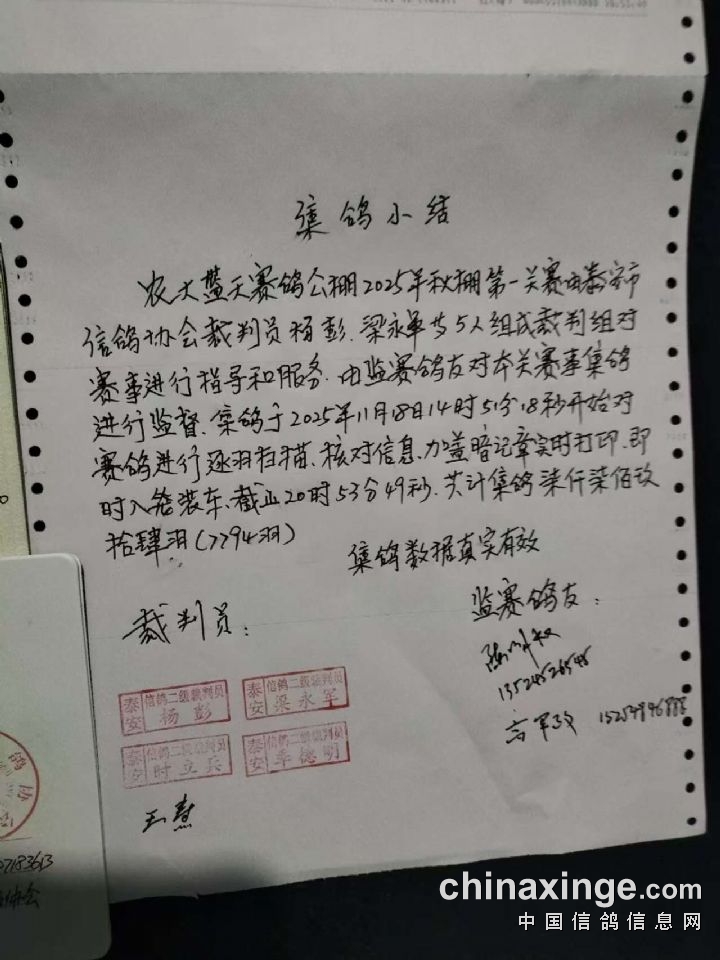 集鸽小结
农大蓝天赛鸽公棚2025年秋棚第一关赛由泰安市
信鸽协会裁判员杨彭、梁永军等5人组成裁判组对
赛事进行指导和服务.由监赛鸽友对本关赛事集鸽
进行监督.集鸽于2025年11月18日14时51分18秒开始对
赛鸽进行逐羽扫描、核对信息、加盖暗记章实时打印.即
时入笼装车、截止20时53分49秒.共计集鸽柒仟柒佰玖
拾肆羽(7794羽)
集鸽数据真实有效
裁判员:
监赛鸽友:
泰安 信鸽二级裁判员 杨彭
泰安 信鸽二级裁判员 梁永军
泰安 信鸽二级裁判员 时立兵
泰安 信鸽二级裁判员 季德明
王慧
7183613
协会
chinaxinge.com
中国信鸽信息网